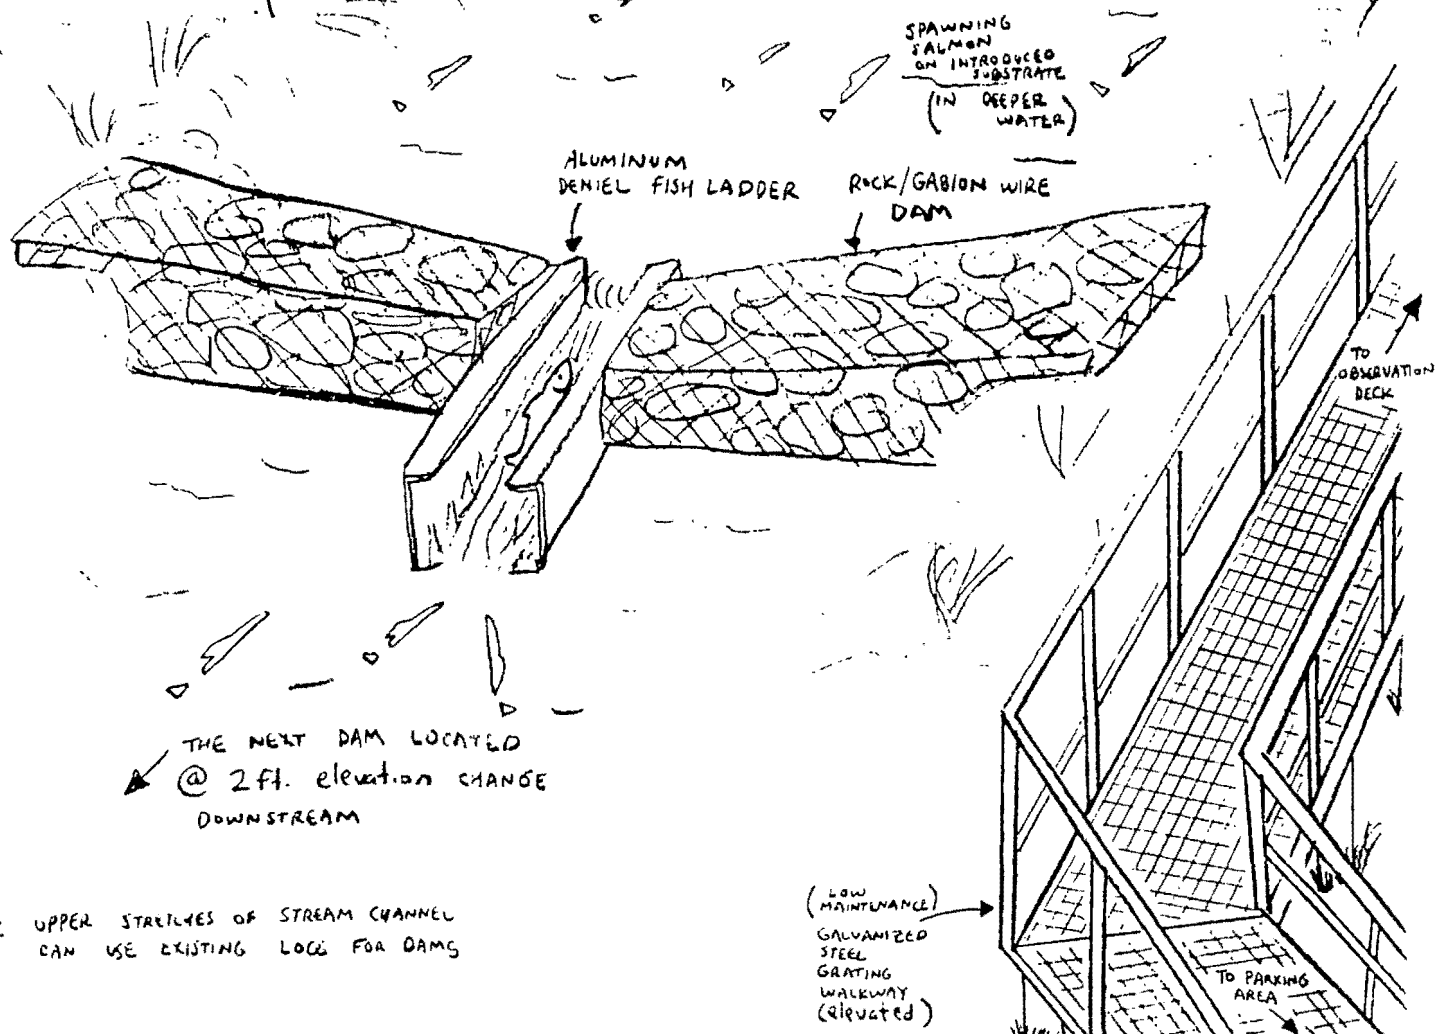 SPAWNING
SALMON
ON INTRODUCED
SUBSTRATE
(IN DEEPER
WATER)
ALUMINUM
DENIEL FISH LADDER
ROCK/GABION WIRE
DAM
TO
OBSERVATION
DECK
THE NEXT DAM LOCATED
@ 2 ft. elevation CHANGE
DOWNSTREAM
UPPER STRETCHES OF STREAM CHANNEL
CAN USE EXISTING LOGS FOR DAMS
(LOW
MAINTENANCE)
GALVANIZED
STEEL
GRATING
WALKWAY
(elevated)
TO PARKING
AREA